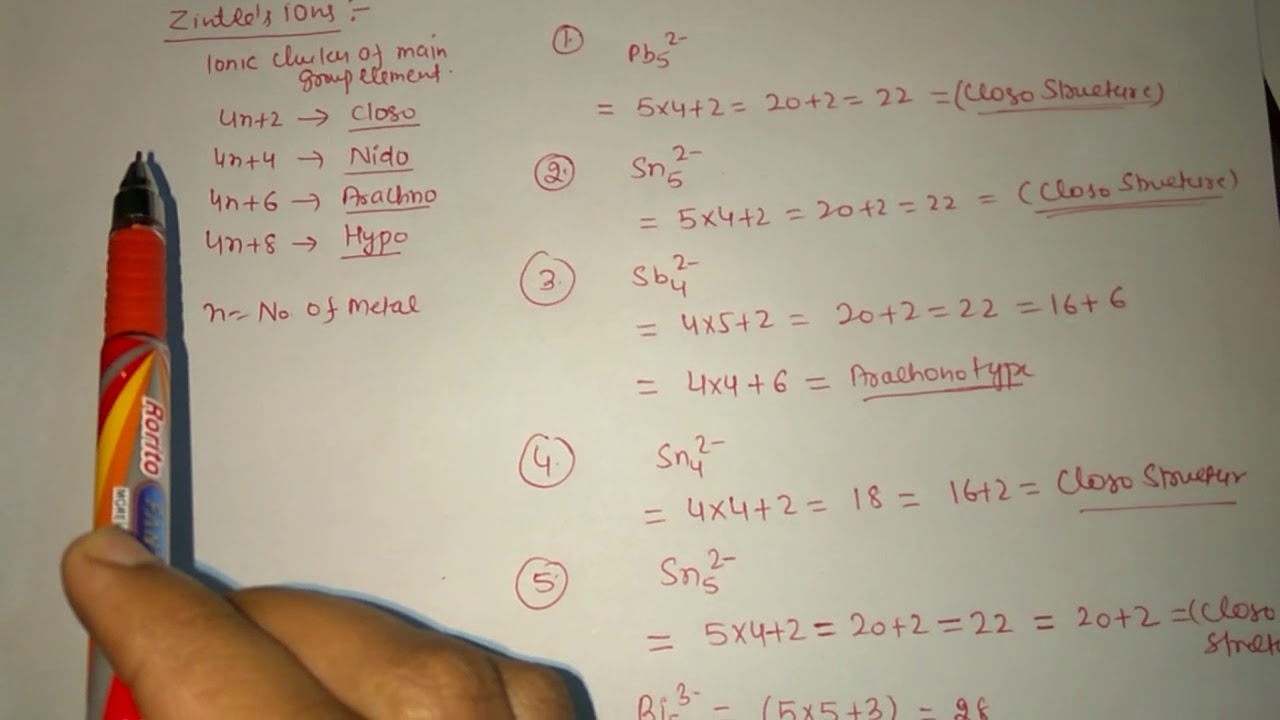 Zintle's ions :-
Ionic cluster of main
group element.
4n+2 → Closo
4n+4 → Nido
4n+6 → Arachno
4n+8 → Hypo
n = No. of Metal
① Pb₅²⁻
= 5x4+2 = 20+2 = 22 = (Closo Structure)
② Sn₅²⁻
= 5x4+2 = 20+2 = 22 = (Closo Structure)
③ Sb₄²⁻
= 4x5+2 = 20+2 = 22 = 16+6
= 4x4+6 = Arachono type
④ Sn₄²⁻
= 4x4+2 = 18 = 16+2 = Closo Structur
⑤ Sn₅²⁻
= 5x4+2 = 20+2 = 22 = 20+2 = (Closo
Rorito
MORE